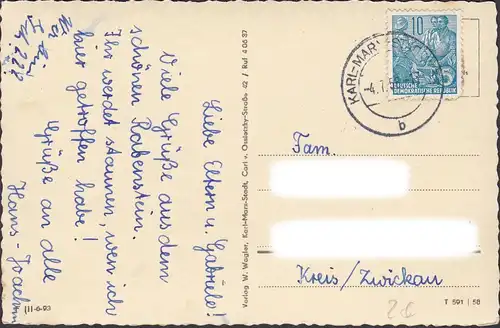 Liebe Eltern u. Gabriele!
Viele Grüße aus dem
schönen Rabenstein.
Ihr werdet staunen, wen ich
hier getroffen habe!
Grüße an alle
Hans-Joachim
Verlag W. Wagler, Karl-Marx-Stadt, Carl v. Ossietzky-Straße 42 / Ruf 4 06 87
10
DEUTSCHE
DEMOKRATISCHE REPUBLIK
KARL-MARX-STADT
-4.7.5
b
Fam.
Kreis/Zwickau
T 591 / 58
III-6-93